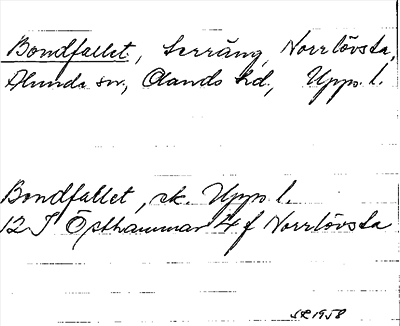 Bondfallet, terräng, Norrlövsta,
Alunda sn, Olands hd, Upps. l.
Bondfallet, sk. Upps l.
12 I Östhammar 4 f Norrlövsta
SR 1958